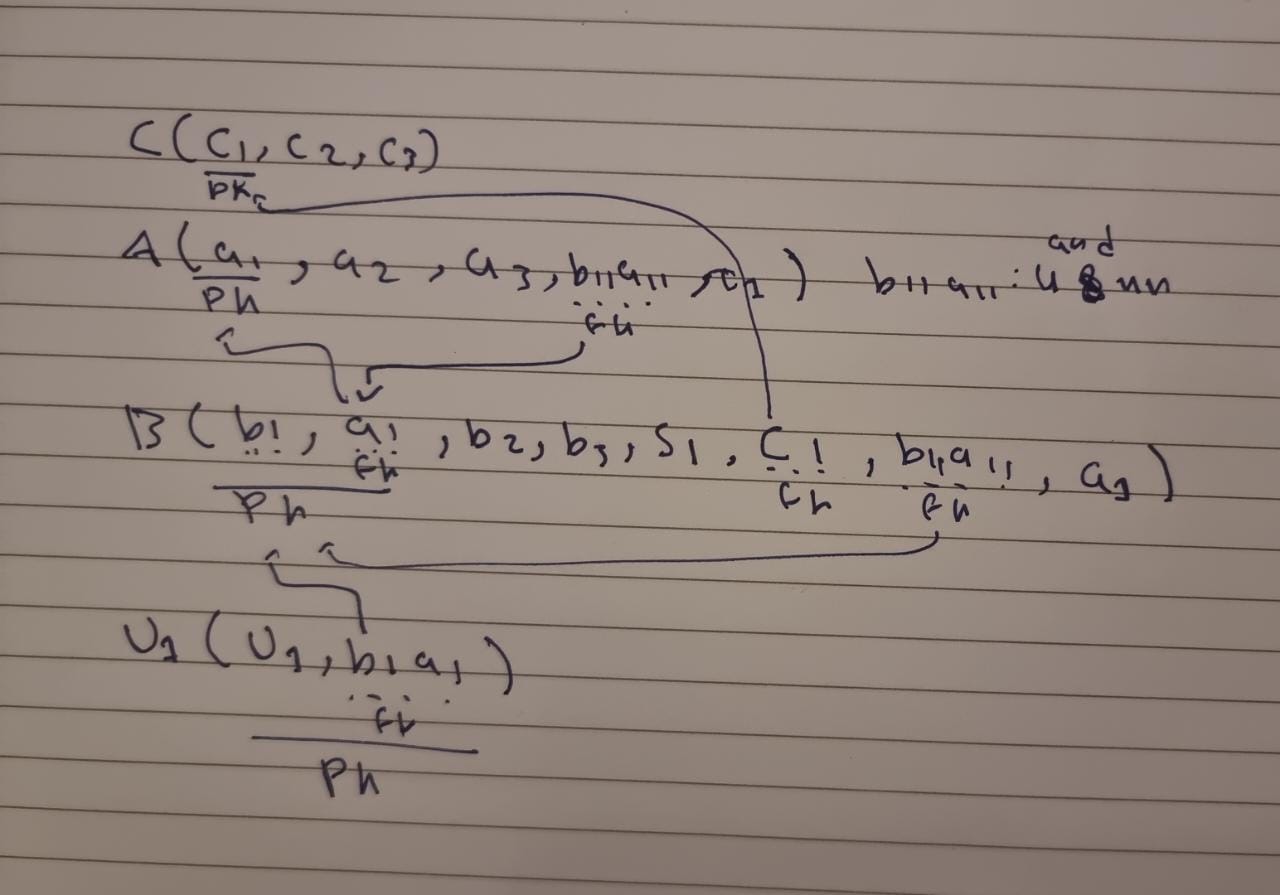 C(C1, C2, C3)
PK
A(a1, a2, a3, b11a11, r1) b11a11: U and NN
PK
FK
B(b1, a1, b2, b3, S1, C1, b11a11, a1)
FK FK FK
PK
U1(U1, b1a1)
FK
PK